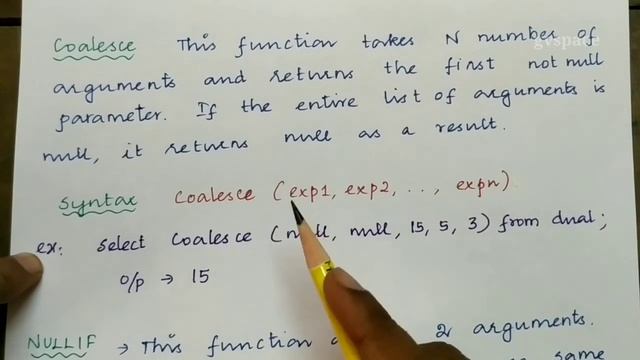 Coalesce This function takes N number of
gvspace
arguments and returns the first not null
parameter. If the entire list of arguments is
null, it returns null as a result.
Syntax Coalesce (exp1, exp2, . . , expn)
ex: Select Coalesce (null, null, 15, 5, 3) from dual;
o/p → 15
NULLIF → This function 2 arguments.
same